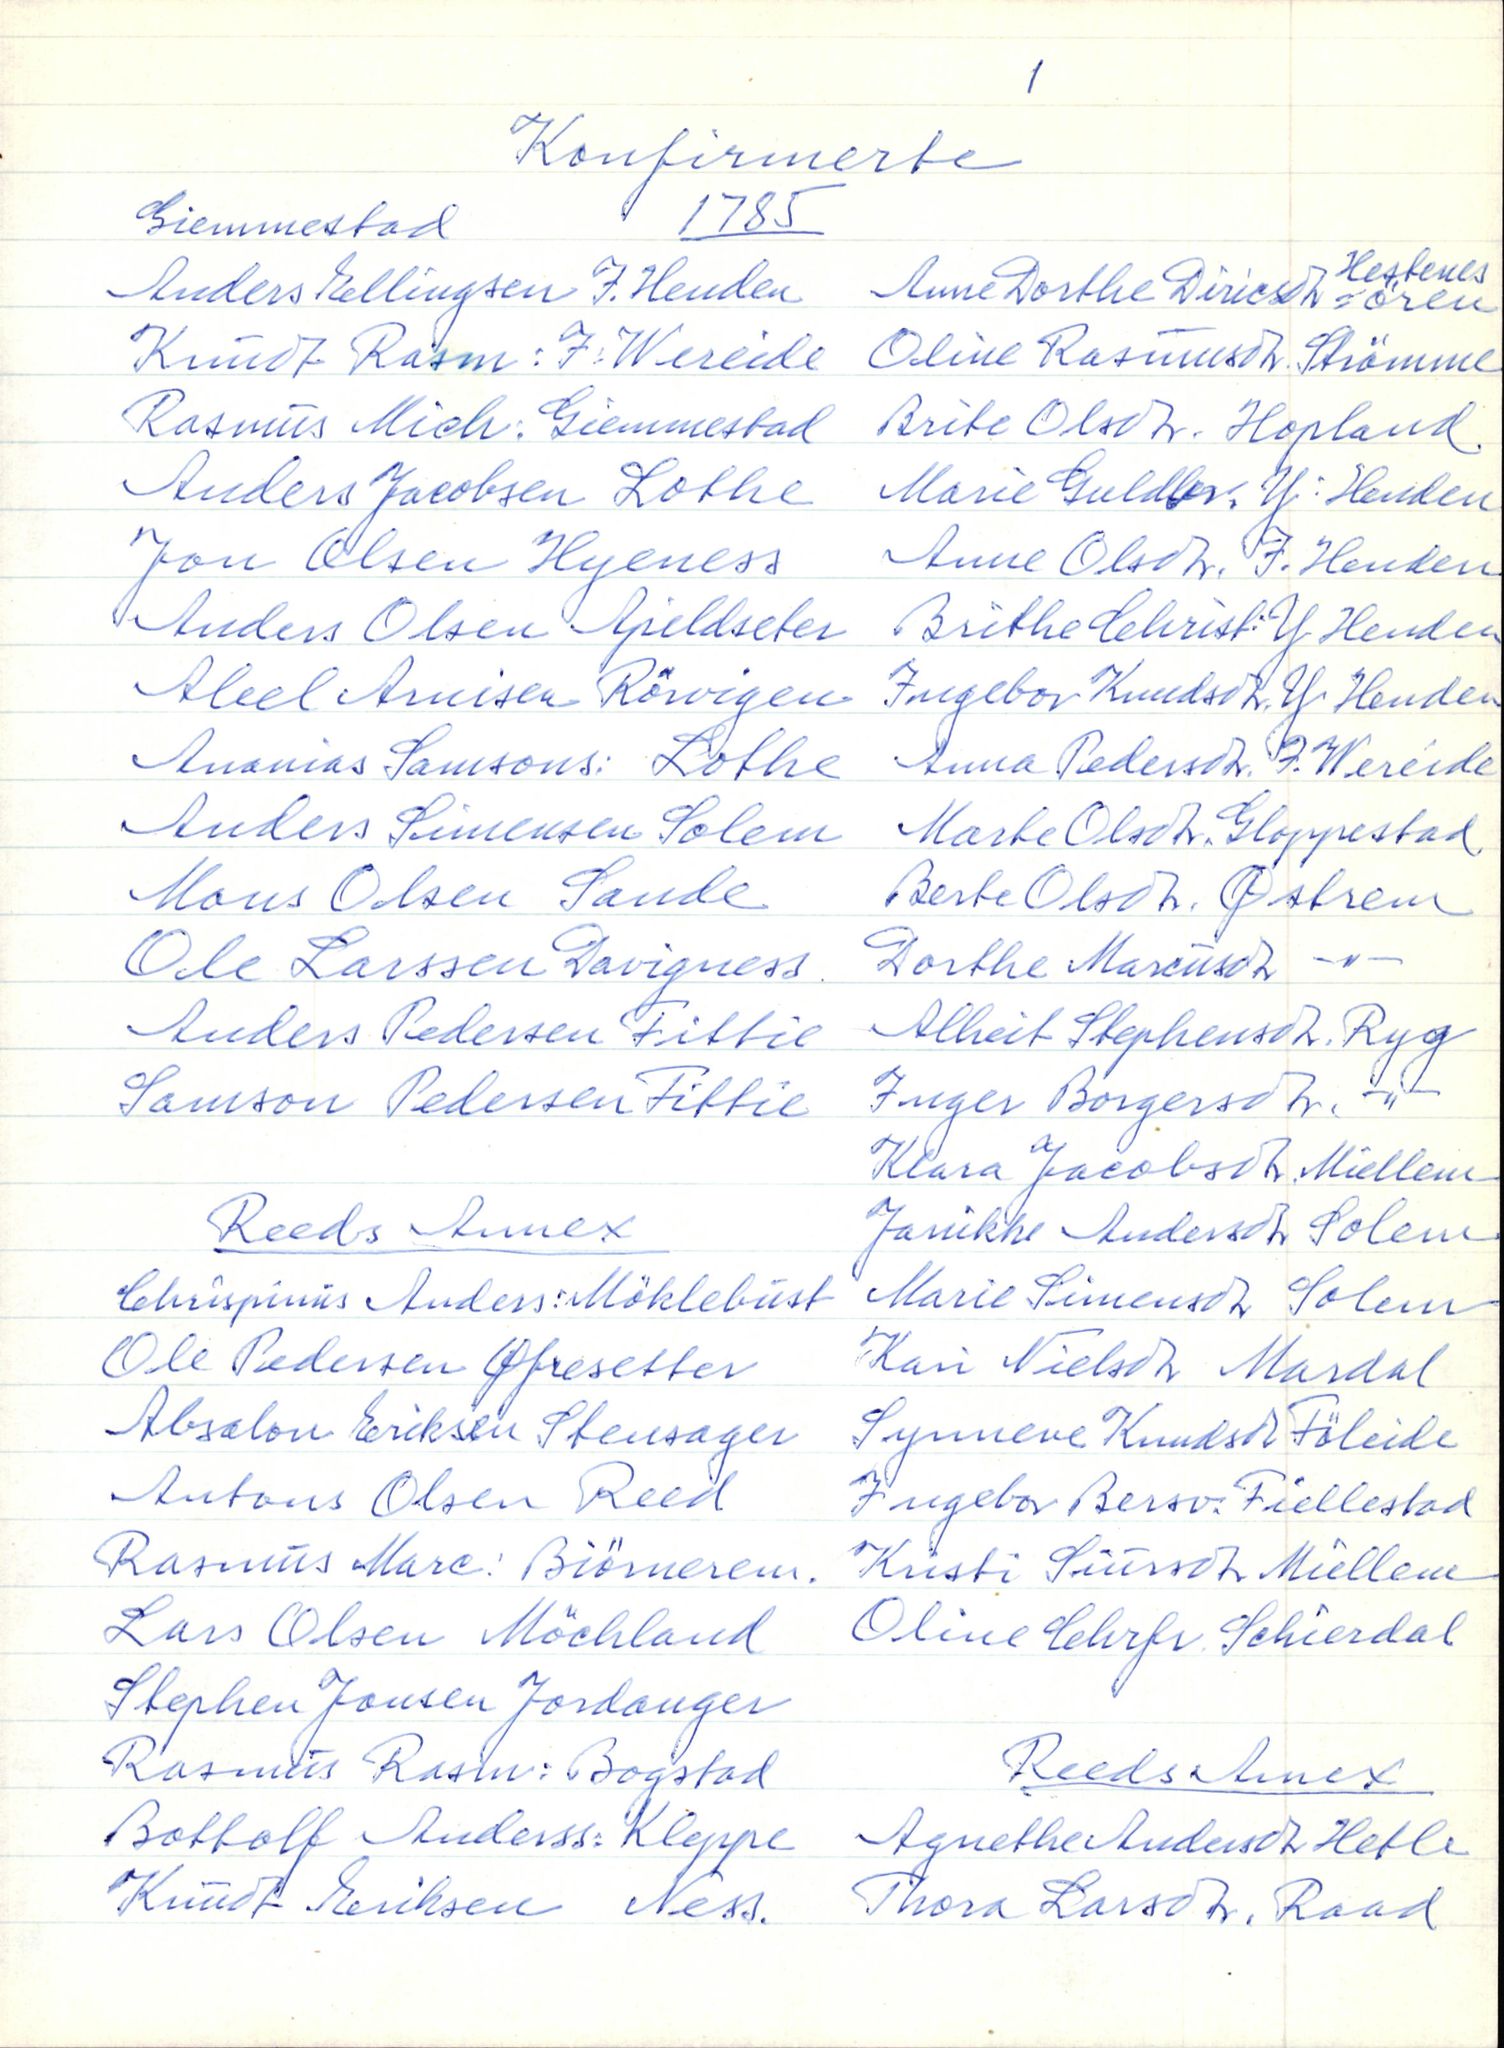 1
Konfirmerte
1785
Giemmestad
Anders Ellingsen F. Henden
Knudt Rasm: F: Wereide
Rasmus Mich: Giemmestad
Anders Jacobsen Lothe
Jon Olsen Hyeness
Anders Olsen Apieldseter
Aleel Arnisen Rörvigen
Ananias Samsons: Lothe
Anders Simensen Solem
Mons Olsen Sande
Ole Larssen Davigness.
Anders Pedersen Fittie
Samson Pedersen Fittie
Reeds Annex
Chrispinus Anders: Möklebust
Ole Pedersen Øfresetter
Absalon Eriksen Stensager
Antons Olsen Reed
Rasmus Marc: Biörnerem.
Lars Olsen Möchland
Stephen Jonsen Jordanger
Rasmus Rasm: Bogstad
Bottolf Anderss: Kleppe
Knudt Eriksen Ness.
Anne Dorthe Diricsdtr Hestenes=ören
Oline Rasmusdtr. Strömme
Brite Olsdtr. Hopland.
Marie Guldbr. Y: Henden
Anne Olsdtr. F. Henden
Brithe Christ: Y Henden
Ingebor Knudsdtr. Y. Henden
Anna Pedersdtr. F. Wereide
Marte Olsdtr. Gloppestad.
Berte Olsdtr. Østrem
Dorthe Marcusdtr -"-
Alheit Stephensdtr. Ryg
Inger Borgersdtr. -"-
Klara Jacobsdtr. Miellem
Janikke Andersdtr Solem
Marie Simensdtr Solem
Kari Nielsdtr Mardal
Synneve Knudsdtr Föleide
Ingebor Bersv: Fiellestad
Kristi Siursdtr Miellem
Oline Chrfr. Schierdal
Reeds Annex
Agnethe Andersdtr Hetle
Thora Larsdtr. Raad